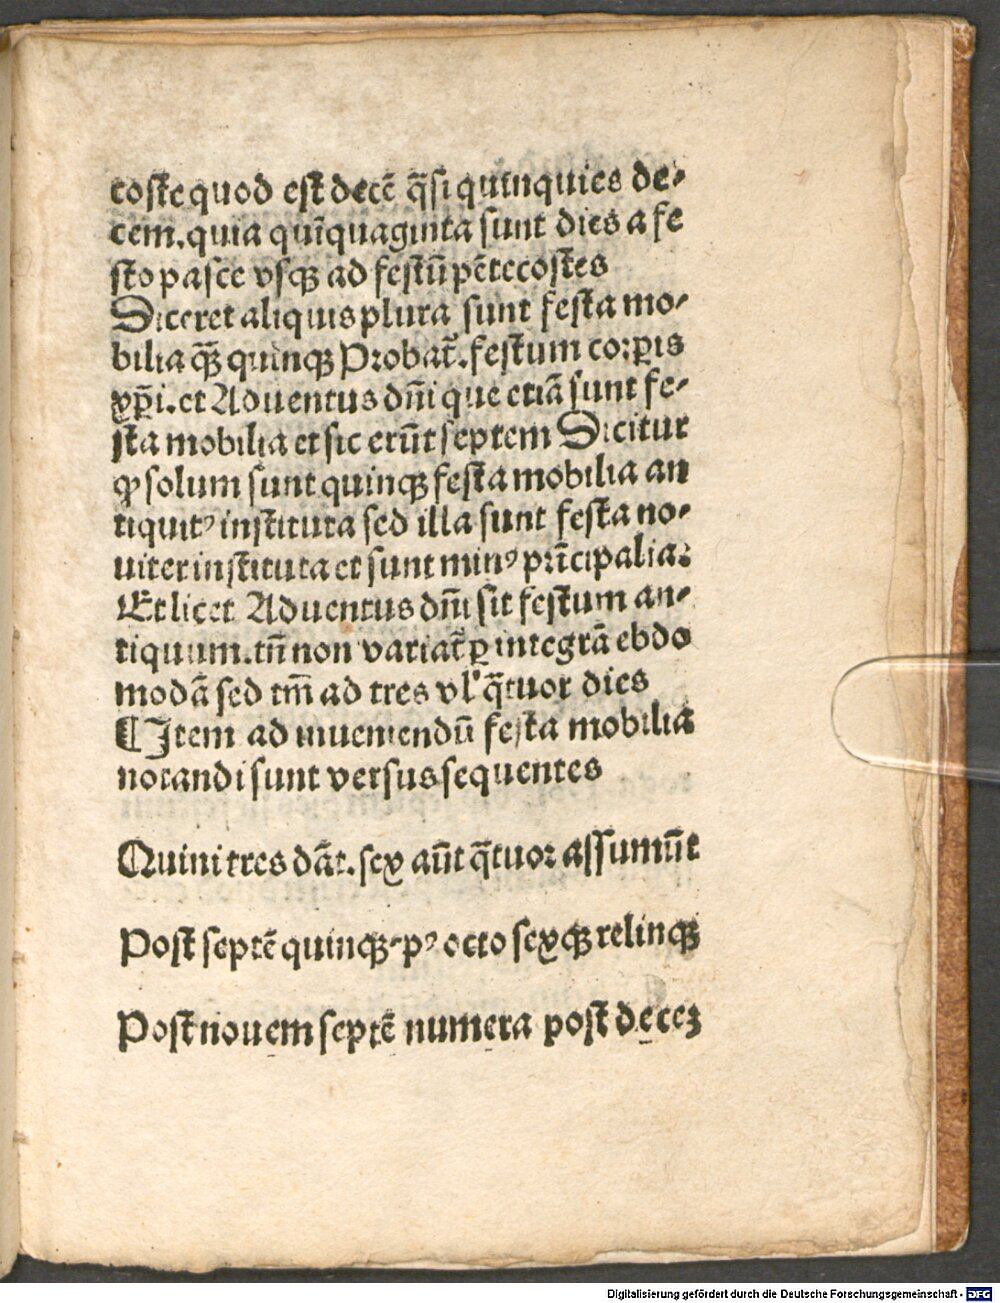 coste quod est decē q̄si quinquies de⸗
cem. quia quīquaginta sunt dies a fe
sto pasce vsqꝫ ad festū pētecostes
Diceret aliquis plura sunt festa mo⸗
bilia qꝫ̄ quinqꝫ Probat᷑. festum corꝑis
xp̄i. et Aduentus dn̄i que etiā sunt fe⸗
sta mobilia et sic erūt septem Dicitur
ꝙ solum sunt quinqꝫ festa mobilia an
tiquitꝰ instituta sed illa sunt festa no⸗
uiter instituta et sunt minꝰ prīcipalia:
Et licet Aduentus dn̄i sit festum an⸗
tiquum. tn̄ non variat᷑ ꝑ integrā ebdo
modā sed tm̄ ad tres vl' q̄tuor dies
¶ Item ad inueniendū festa mobilia
notandi sunt versus sequentes
Quini tres dāt. sex aūt q̄tuor assumūt
Post septē quinqꝫ⸗pꝰ octo sexqꝫ relinqꝫ
Post nouem septē numera post deceꝫ
Digitalisierung gefördert durch die Deutsche Forschungsgemeinschaft - DFG